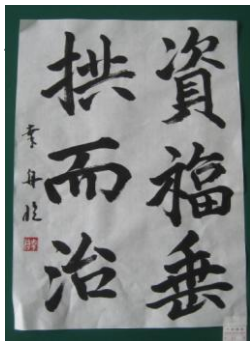 資福垂
拱而治